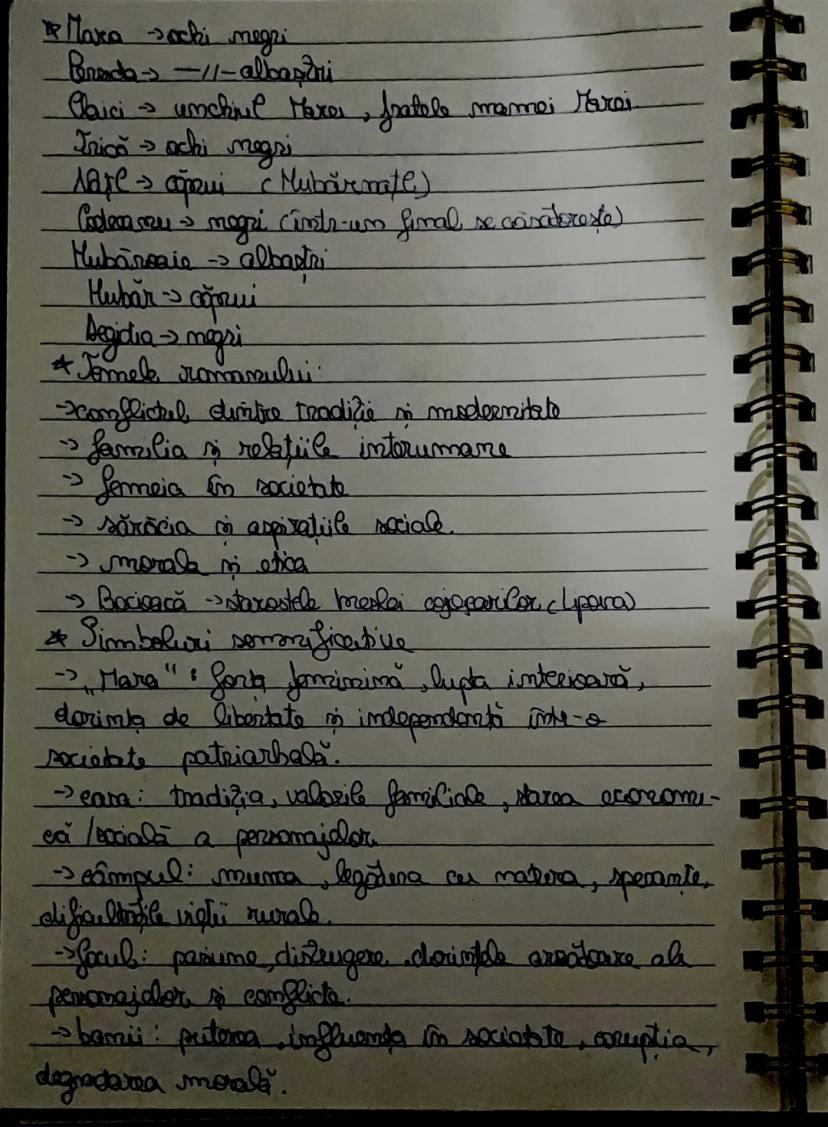 * Mara → ochi negri
Persida → —//— albaștri
Claici → unchiul Marei, fratele mamei Marei
Trică → ochi negri
Națl → căprui (Hubărnațl)
Codreanu → negri (într-un final se căsătorește)
Hubăroaie → albaștri
Hubăr → căprui
Aegidia → negri
* Temele romanului:
→ conflictul dintre tradiție și modernitate
→ familia și relațiile interumane
→ femeia în societate
→ sărăcia și aspirațiile sociale.
→ morala și etica
→ Bocioacă → starostele breslei cojocarilor (Lipova)
* Simboluri semnificative
→ „Mara" : forța feminină, lupta interioară,
dorința de libertate și independență într-o
societate patriarhală.
→ casa: tradiția, valorile familiale, starea economi-
că /socială a personajelor.
→ câmpul: munca, legătura cu natura, speranțe,
dificultățile vieții rurale.
→ focul: pasiune, distrugere, dorințele arzătoare ale
personajelor și conflicte.
→ banii: puterea, influența în societate, corupția,
degradarea morală.